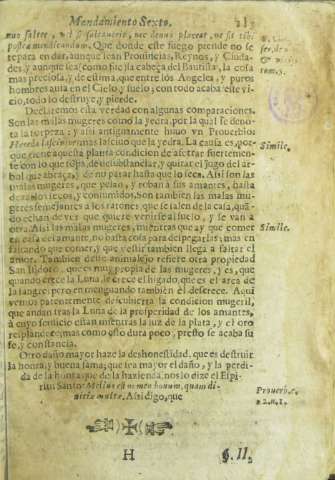 Mandamiento Sexto.
nus saltet, si saltaueris, nec donus placeat, ne sit tibi
postea mendicandum. Que donde este fuego prende no se
repara en dar, aunque sean Prouincias, Reynos, y Ciuda-
des, y aunque sea, como fue, la cabeça del Bautista, la cosa
mas preciosa, y de estima, que entre los Angeles, y puros
hombres auia en el Cielo, y suelo, con todo acaba este vi-
cio, todo lo destruye, y pierde.
Declaremos esta verdad con algunas comparaciones.
Son las malas mugeres como la yedra, por la qual se deno-
ta la torpeza: y assi antiguamente huuo vn Prouerbio:
Hedera lasciuior: mas lasciuo que la yedra. La causa es, por-
que tiene aquesta planta condicion de asirse fuertemen-
te con lo que topa, de subsistir, y quitar el jugo del ar-
bol que abraça, y de no parar hasta que lo seca. Assi son las
malas mugeres, que pelan, y roban a sus amantes, hasta
dexarlos secos, y consumidos. Son tambien las malas mu-
geres semejantes a los ratones, que se salen de la casa, quã-
do echan de ver que quiere venirse al suelo, y se van a
otra. Assi las malas mugeres, mientras que ay que comer
en casa del amante, no basta cosa para despegarlas; mas en
faltando que comer, y que vestir tambien llega a faltar el
amor. Tambien deste animalejo refiere otra propiedad
San Isidoro, que es muy propia de las mugeres, y es, que
quando crece la Luna le crece el higado, que es el arca de
la sangre, pero en menguando tambien el descrece. Aqui
vemos patentemente descubierta la condicion mugeril,
que andan tras la Luna de la prosperidad de los amantes,
à cuyo seruicio estàn mientras la luz de la plata, y el oro
resplandece; mas como esto dura poco, presto se acaba su
fe, y constancia.
Otro daño mayor haze la deshonestidad, que es destruir
la honra, y buena fama; que sea mayor el daño, y la perdi-
da de la honra, que de la hazienda, nos lo dize el Espi-
ritu Santo: Melius est nomen bonum, quam di-
uitiæ multæ. Assi digo, que
Simile.
Simile.
Prouerb. c.
22. n. 1.
H
§. II.